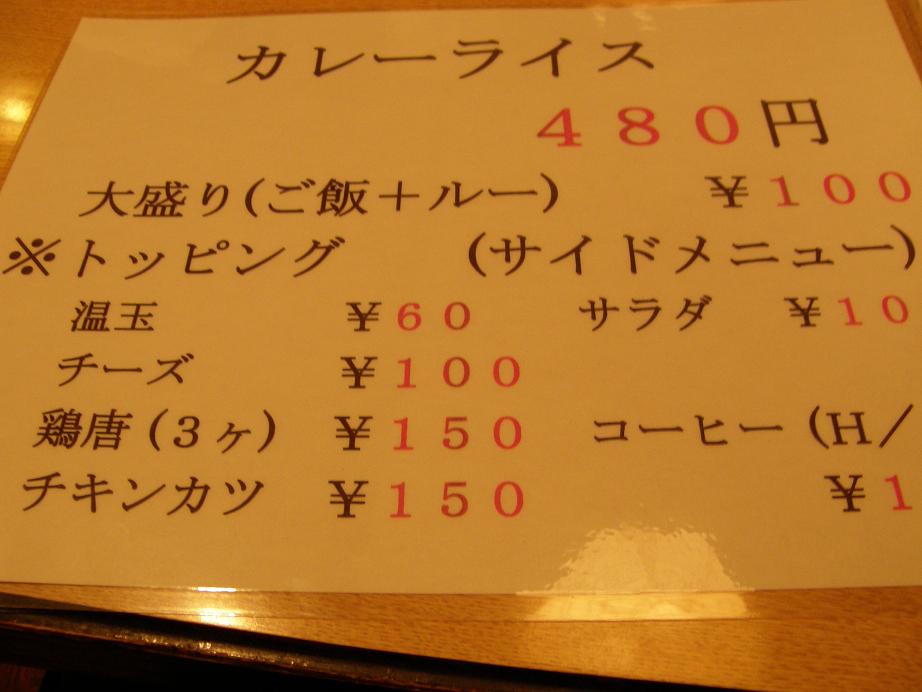 カレーライス
４８０円
大盛り(ご飯＋ルー) ¥１００
※トッピング (サイドメニュー)
温玉 ¥６０ サラダ ¥１０
チーズ ¥１００
鶏唐(３ヶ) ¥１５０ コーヒー(H/
チキンカツ ¥１５０ ¥１